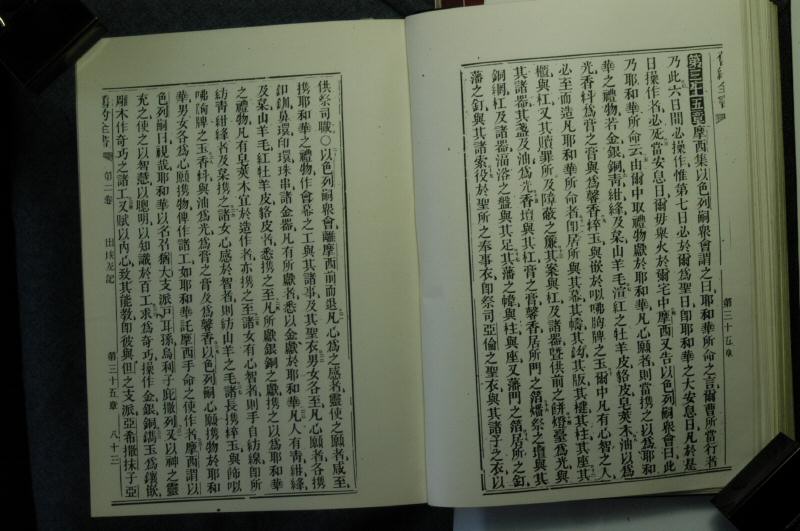 第三十五章 摩西集以色列嗣衆會謂之曰耶和華所命之言爾曹所當行者
乃此六日間必操作惟第七日必於爾爲聖日卽耶和華之大安息日凡於是
日操作者必死當安息日爾毋舉火於爾宅中摩西又告以色列嗣衆會曰此
乃耶和華所命云由爾中取禮物獻於耶和華凡心願者則當攜之以爲耶和
華之禮物若金銀銅靑紺絳及枲山羊毛渲紅之牡羊皮貉皮皂莢木油以爲
光香料爲膏之膏與爲馨香椊玉與嵌於以咈胸牌之玉爾中凡有心智之人
必至而造凡耶和華所命者卽居所與其幕其幃其鈎其版其楗其柱其座其
櫃與杠又其贖罪所及障蔽之簾其案與杠及諸器曁供前之餅燈臺爲光與
其諸器其盞及油爲光香壇與其杠膏之膏馨香居所門之箔燔祭之壇與其
銅網杠及諸器湢洛之盤與其足其藩之幃與柱與座又藩門之箔居所之釘
藩之釘與其諸索役於聖所之奉事衣卽祭司亞倫之聖衣與其諸子之衣以
第三十五章
供祭司職○以色列嗣衆會離摩西前而退凡心爲之感者靈使之願者咸至
攜耶和華之禮物作會幕之工與其諸事及其聖衣男女各至凡心願者各攜
釦釧鼻環印環珠串諸金器凡有所獻者悉以金獻於耶和華凡人有靑紺絳
及枲山羊毛紅牡羊皮貉皮者悉攜之至凡所獻銀銅之獻攜之以爲耶和華
之禮物凡有皂莢木宜於造作者亦攜之至諸女有心智者則手自紡線卽所
紡靑紺絳者及枲攜之諸女心感於智者則紡山羊之毛諸長攜椊玉與飾以
咈胸牌之玉香料與油爲光爲膏之膏及爲馨香以色列嗣心願攜物於耶和
華男女各爲心願攜物俾作諸工如耶和華託摩西手命之使作者摩西謂以
色列嗣曰視哉耶和華以名召猶大支派戶耳孫烏利子庇撒列又以神之靈
充之使之以智慧以聰明以知識於百工求爲奇巧操作金銀銅鐫玉爲鑲嵌
雕木作奇巧之諸工又賦以內心致其能敎卽彼與但之支派亞希撒抹子亞
舊約全書 第二卷 出埃及記 第三十五章 八十三